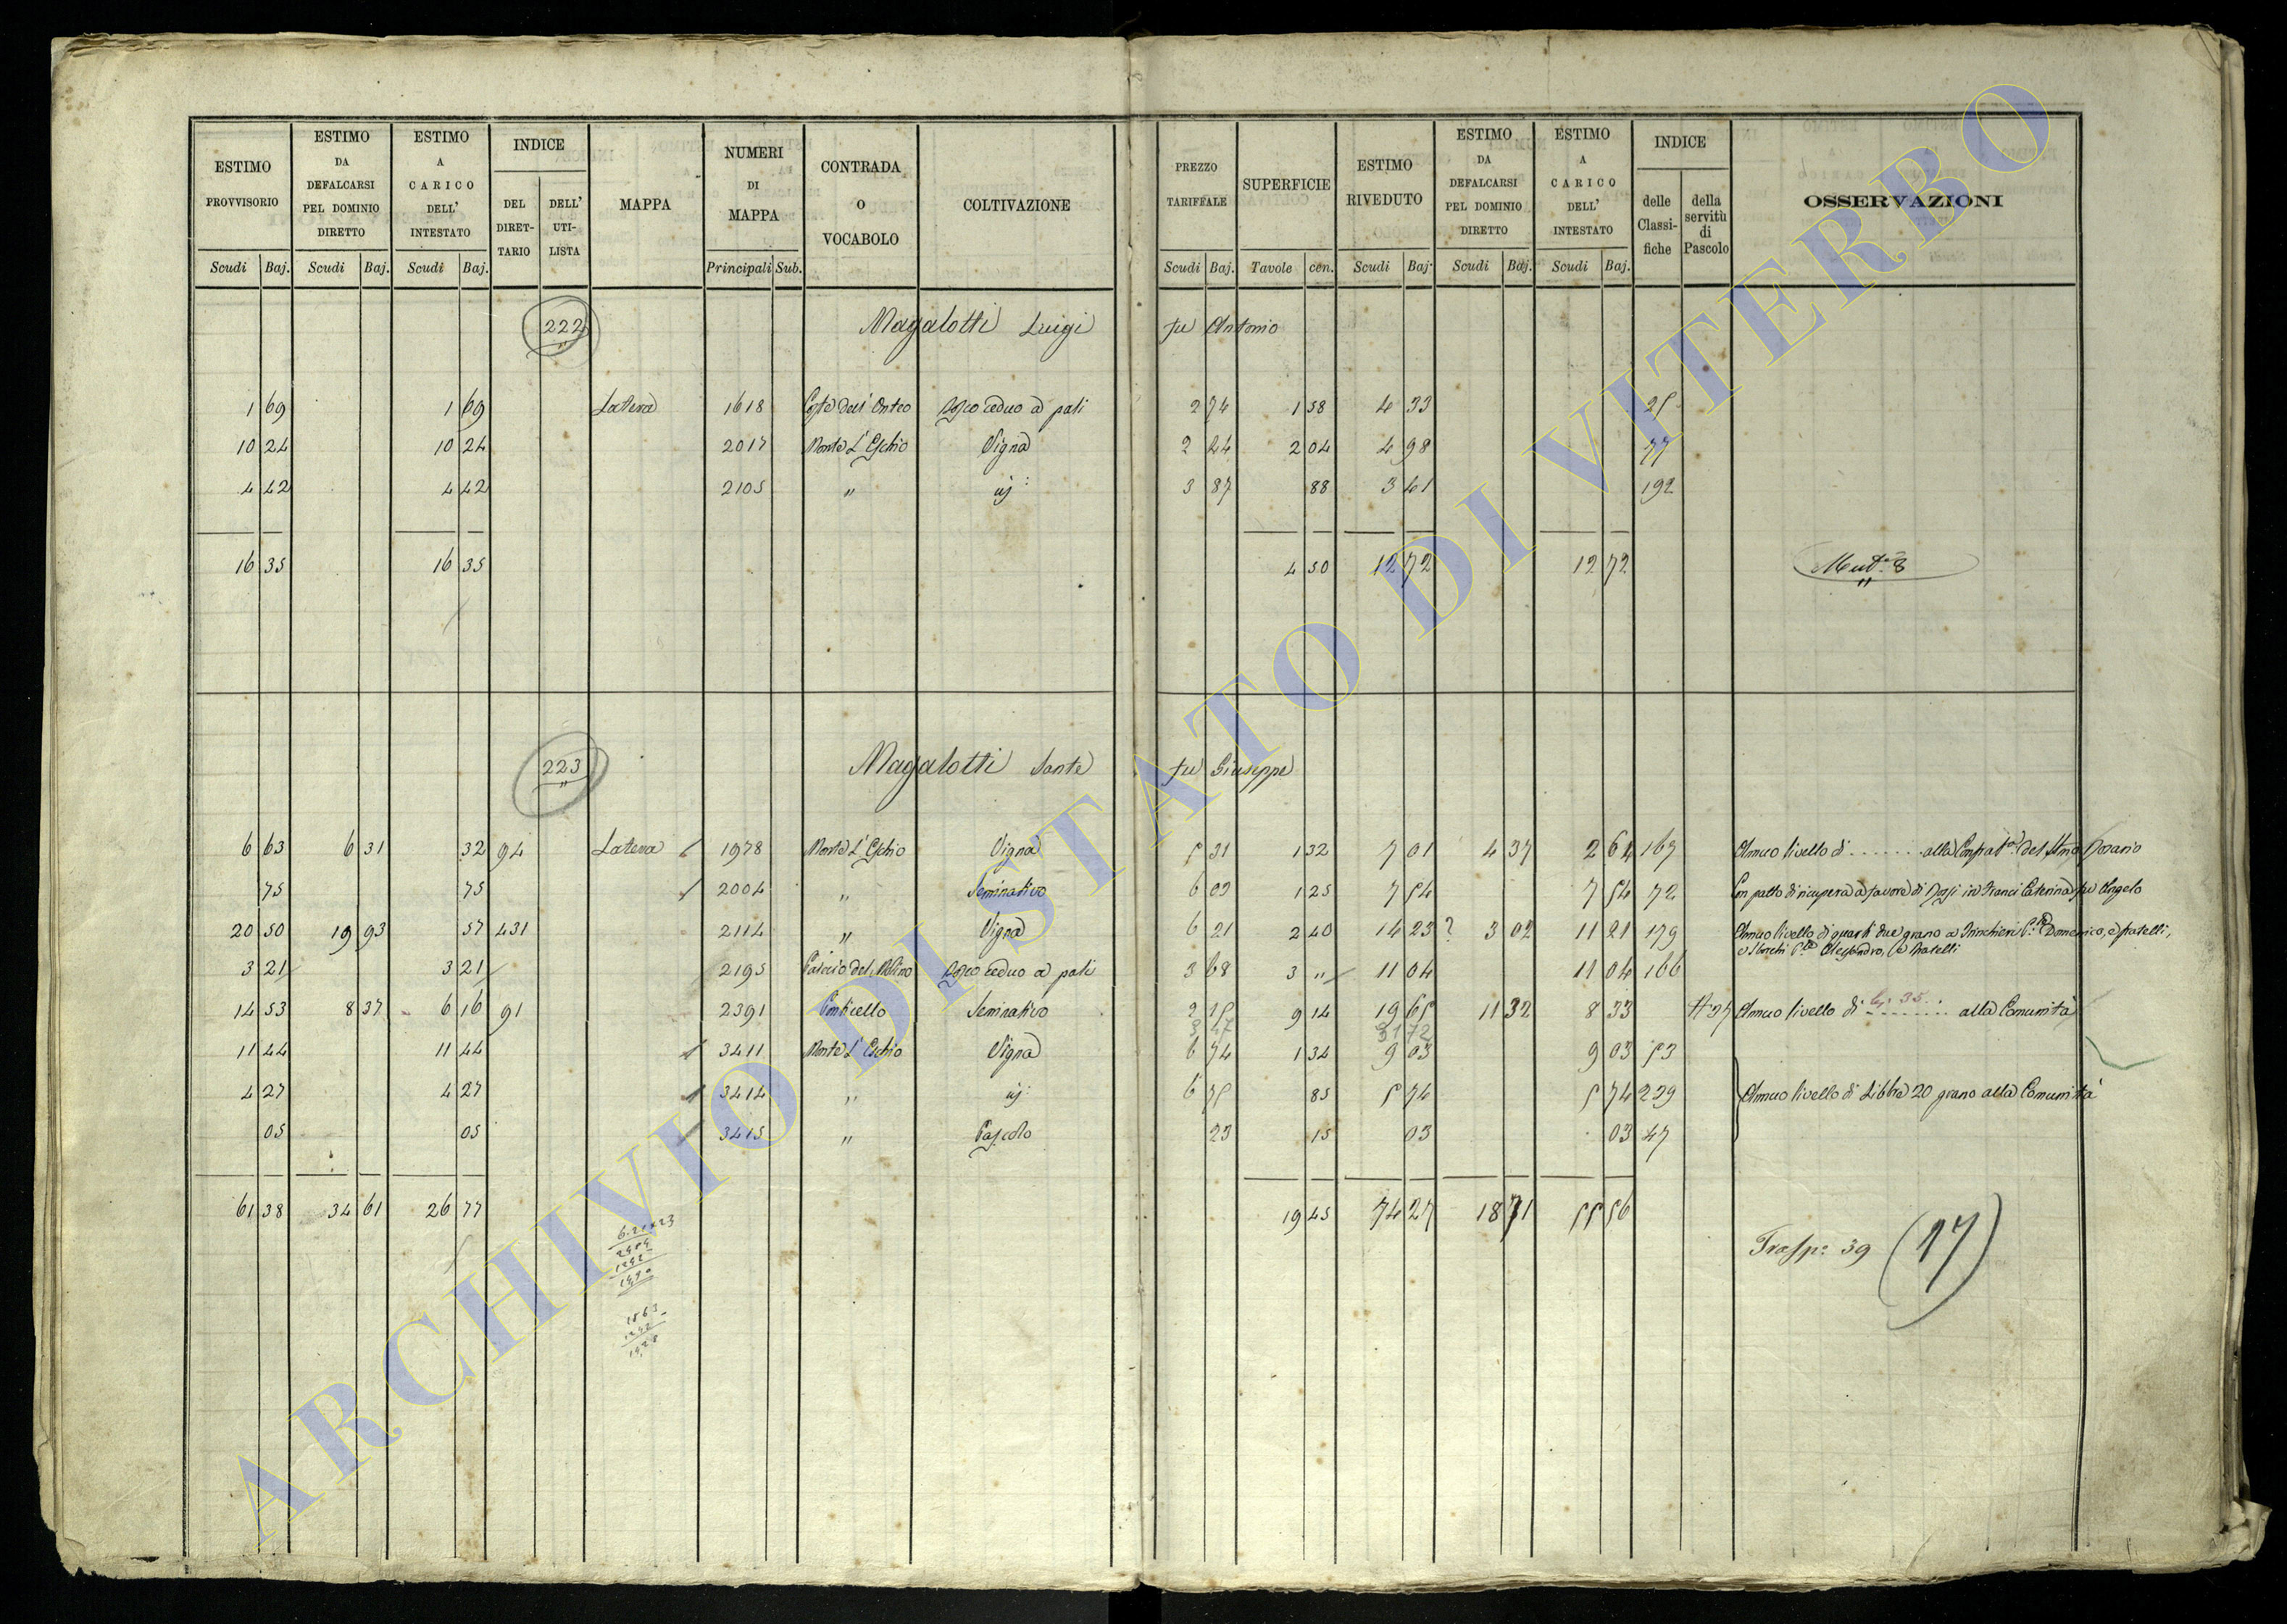 ESTIMO PROVVISORIO | ESTIMO DA DEFALCARSI PEL DOMINIO DIRETTO | ESTIMO A CARICO DELL' INTESTATO | INDICE DEL DIRETTARIO | DELL' UTILISTA | MAPPA | NUMERI DI MAPPA | CONTRADA O VOCABOLO | COLTIVAZIONE | PREZZO TARIFFALE | SUPERFICIE | ESTIMO RIVEDUTO | ESTIMO DA DEFALCARSI PEL DOMINIO DIRETTO | ESTIMO A CARICO DELL' INTESTATO | INDICE delle Classifiche | della servitù di Pascolo | OSSERVAZIONI
Scudi Baj. Scudi Baj. Scudi Baj. Principali Sub. Scudi Baj. Tavole cen. Scudi Baj. Scudi Baj. Scudi Baj.
222 Magalotti Luigi fu Antonio
1 69 1 69 Latera 1618 ceduo a pali 2 74 1 58 4 33 25
10 24 10 24 2017 Monte L'Eschio Vigna 2 44 2 04 4 98 77
4 42 4 42 2105 " 3 87 88 3 41 192
16 35 16 35 4 50 12 72 12 72 Mut.e 8
223 Magalotti Sante fu Giuseppe
6 63 6 31 32 94 Latera 1978 Monte L'Eschio Vigna 5 31 1 32 7 01 4 37 2 64 167 Annuo livello di ........ alla del Rosario
75 75 2004 " Seminativo 6 03 1 25 7 54 7 54 72 Con patto di ricupera a favore di Rossi in Franci Caterina fu Angelo
20 50 19 93 57 431 2114 " Vigna 6 21 2 40 14 23 ? 3 02 11 21 179 Annuo livello di quarti due grano a Domenico, e fratelli,
e Alessandro, e fratelli
3 21 3 21 2195 del Molino ceduo a pali 3 68 3 " 11 04 11 04 166
14 53 8 37 6 16 91 2391 Ponticello Seminativo 2 15 9 14 19 65 11 32 8 33 Annuo livello di ........ alla Comunità
11 44 11 44 3411 Monte L'Eschio Vigna 6 74 1 34 9 03 9 03 53
4 27 4 27 3414 " 6 75 85 5 74 5 74 229 Annuo livello di Libbre 20 grano alla Comunità
05 05 3415 " Pascolo 23 15 03 03 47
61 38 34 61 26 77 19 45 74 27 18 71 55 56
Trasp: 39 (17)
ARCHIVIO DI STATO DI VITERBO